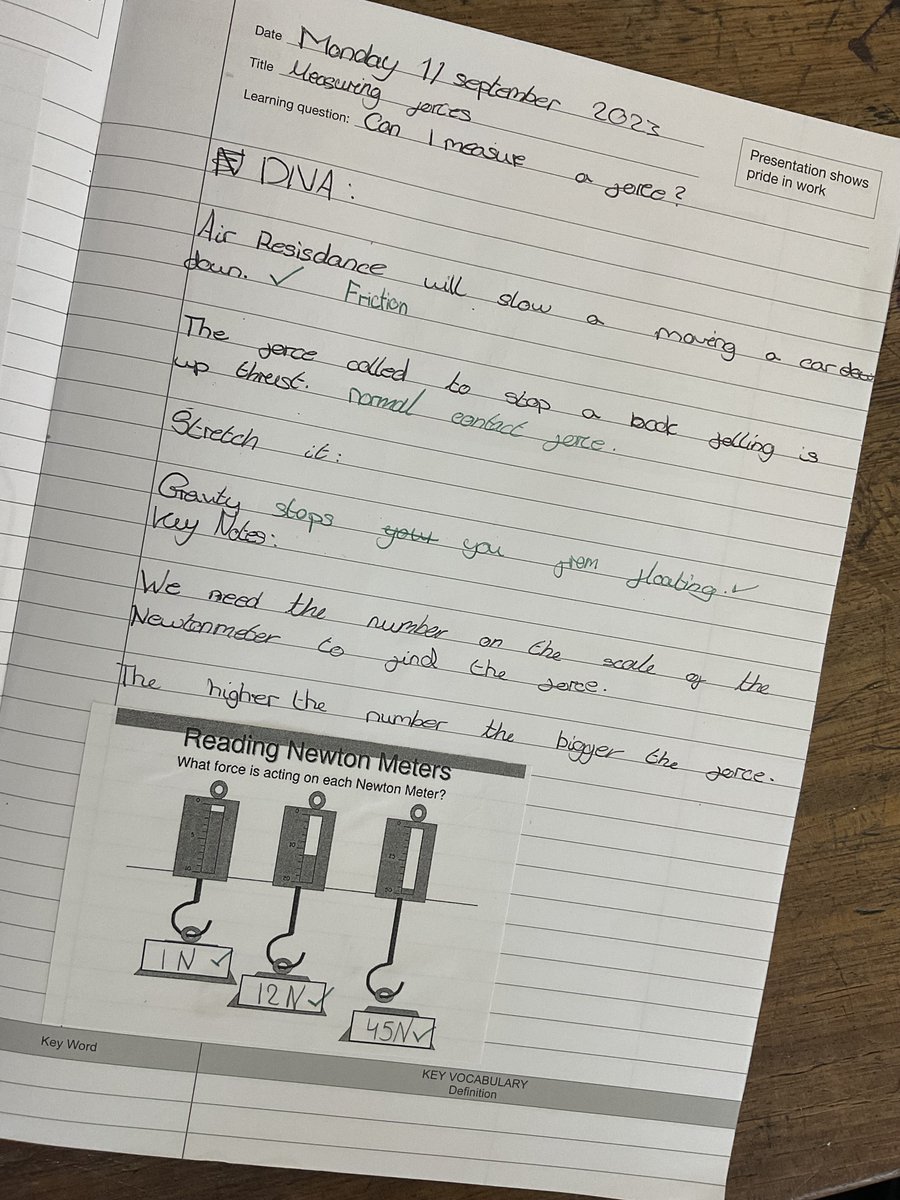 Date Monday 11 september 2023
Title Measuring forces
Learning question: Can I measure a force?
Presentation shows
pride in work
DNA:
Air Resisdance will slow a moving a car
down. ✓ Friction
The force called to stop a book felling is
up thrust. normal contact force.
Stretch it:
Gravity stops you frem floating. ✓
Key Notes:
We need the number on the scale of the
Newtonmeter to find the force.
The higher the number the bigger the force.
Reading Newton Meters
What force is acting on each Newton Meter?
1N ✓
12N ✓
45N ✓
Key Word
KEY VOCABULARY
Definition